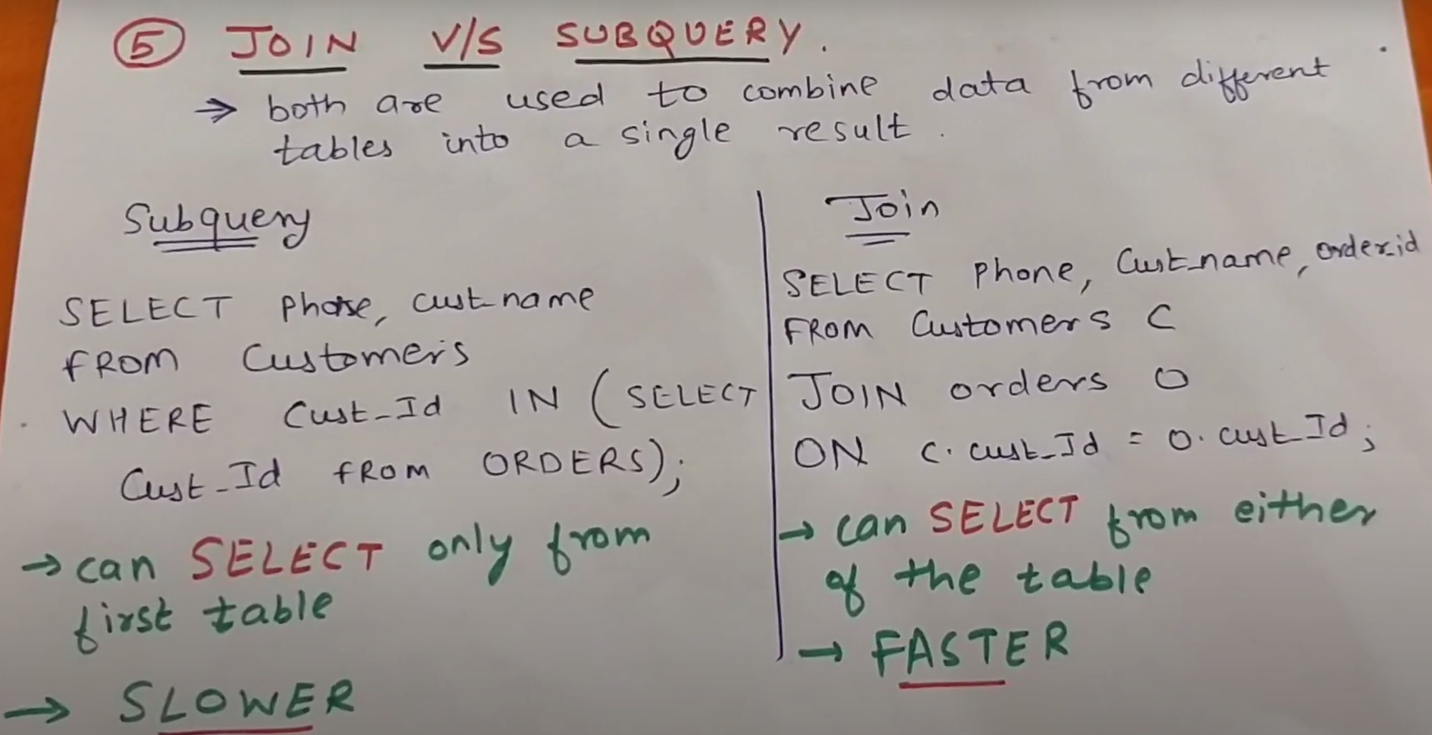 5 JOIN V/S SUBQUERY.
→ both are used to combine data from different
tables into a single result.
Subquery
SELECT Phone, cust_name
FROM Customers
WHERE Cust_Id IN (SELECT
Cust_Id FROM ORDERS);
→ can SELECT only from
first table
→ SLOWER
Join
SELECT Phone, Cust_name, order_id
FROM Customers C
JOIN orders O
ON C.cust_Id = O.cust_Id;
→ can SELECT from either
of the table
→ FASTER